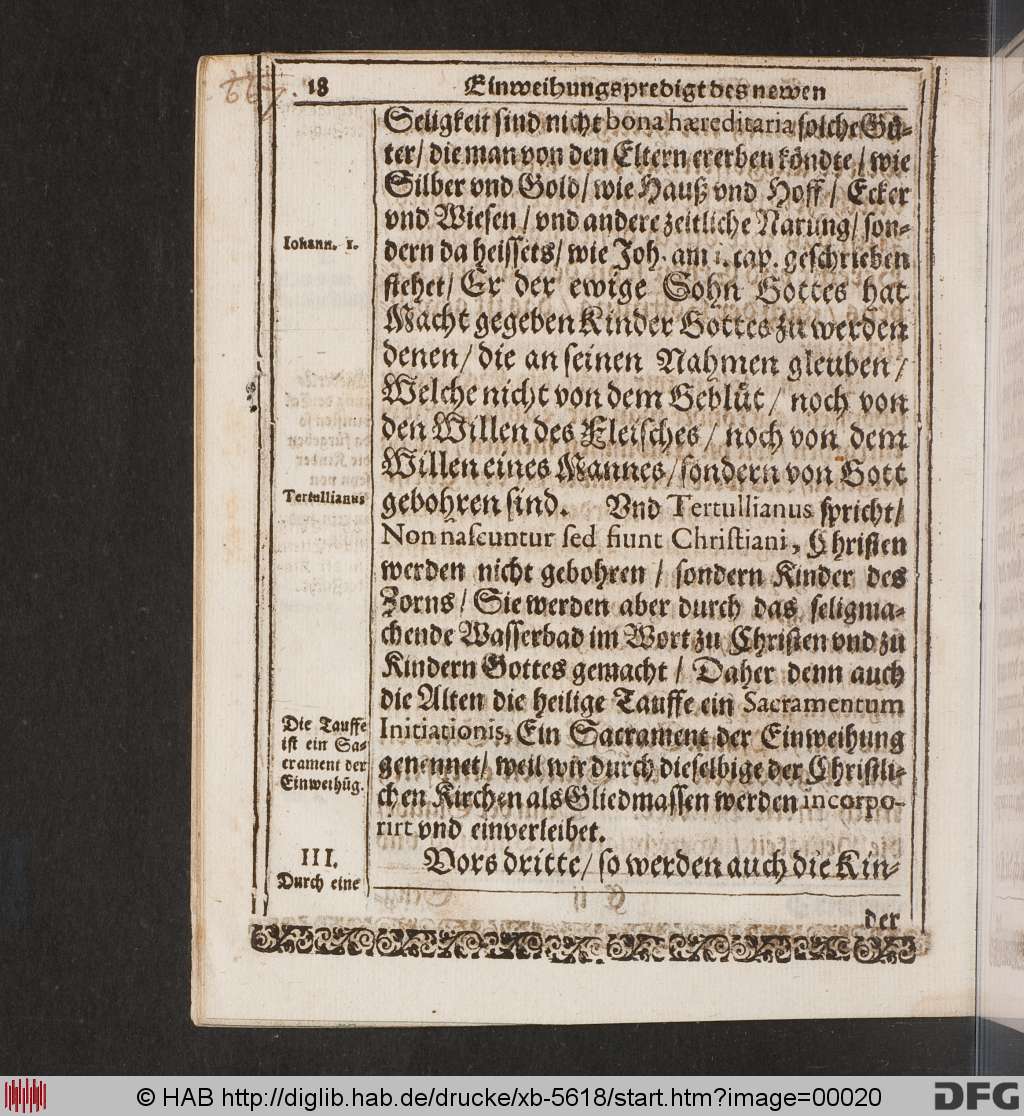 18 Einweihungspredigt des newen
Seligkeit sind nicht bona hæreditaria solche Gü-
ter/ die man von den Eltern ererben köndte/ wie
Silber vnd Gold/ wie Hauß vnd Hoff/ Ecker
vnd Wiesen/ vnd andere zeitliche Narung/ son-
Iohann. 1.
dern da heissets/ wie Joh. am 1. cap. geschrieben
stehet/ Er der ewige Sohn Gottes hat
Macht gegeben Kinder Gottes zu werden
denen/ die an seinen Nahmen gleuben/
Welche nicht von dem Geblüt/ noch von
den Willen des Fleisches/ noch von dem
Willen eines Mannes/ sondern von Gott
Tertullianus
gebohren sind. Vnd Tertullianus spricht/
Non nascuntur sed fiunt Christiani, Christen
werden nicht gebohren/ sondern Kinder des
Zorns/ Sie werden aber durch das seligma-
chende Wasserbad im Wort zu Christen vnd zu
Kindern Gottes gemacht/ Daher denn auch
die Alten die heilige Tauffe ein Sacramentum
Die Tauffe
ist ein Sa-
crament der
Einweihũg.
Initiationis, Ein Sacrament der Einweihung
genennet/ weil wir durch dieselbige der Christli-
chen Kirchen als Gliedmassen werden incorpo-
rirt vnd einverleibet.
III.
Durch eine
Vors dritte/ so werden auch die Kin-
der
© HAB http://diglib.hab.de/drucke/xb-5618/start.htm?image=00020
DFG